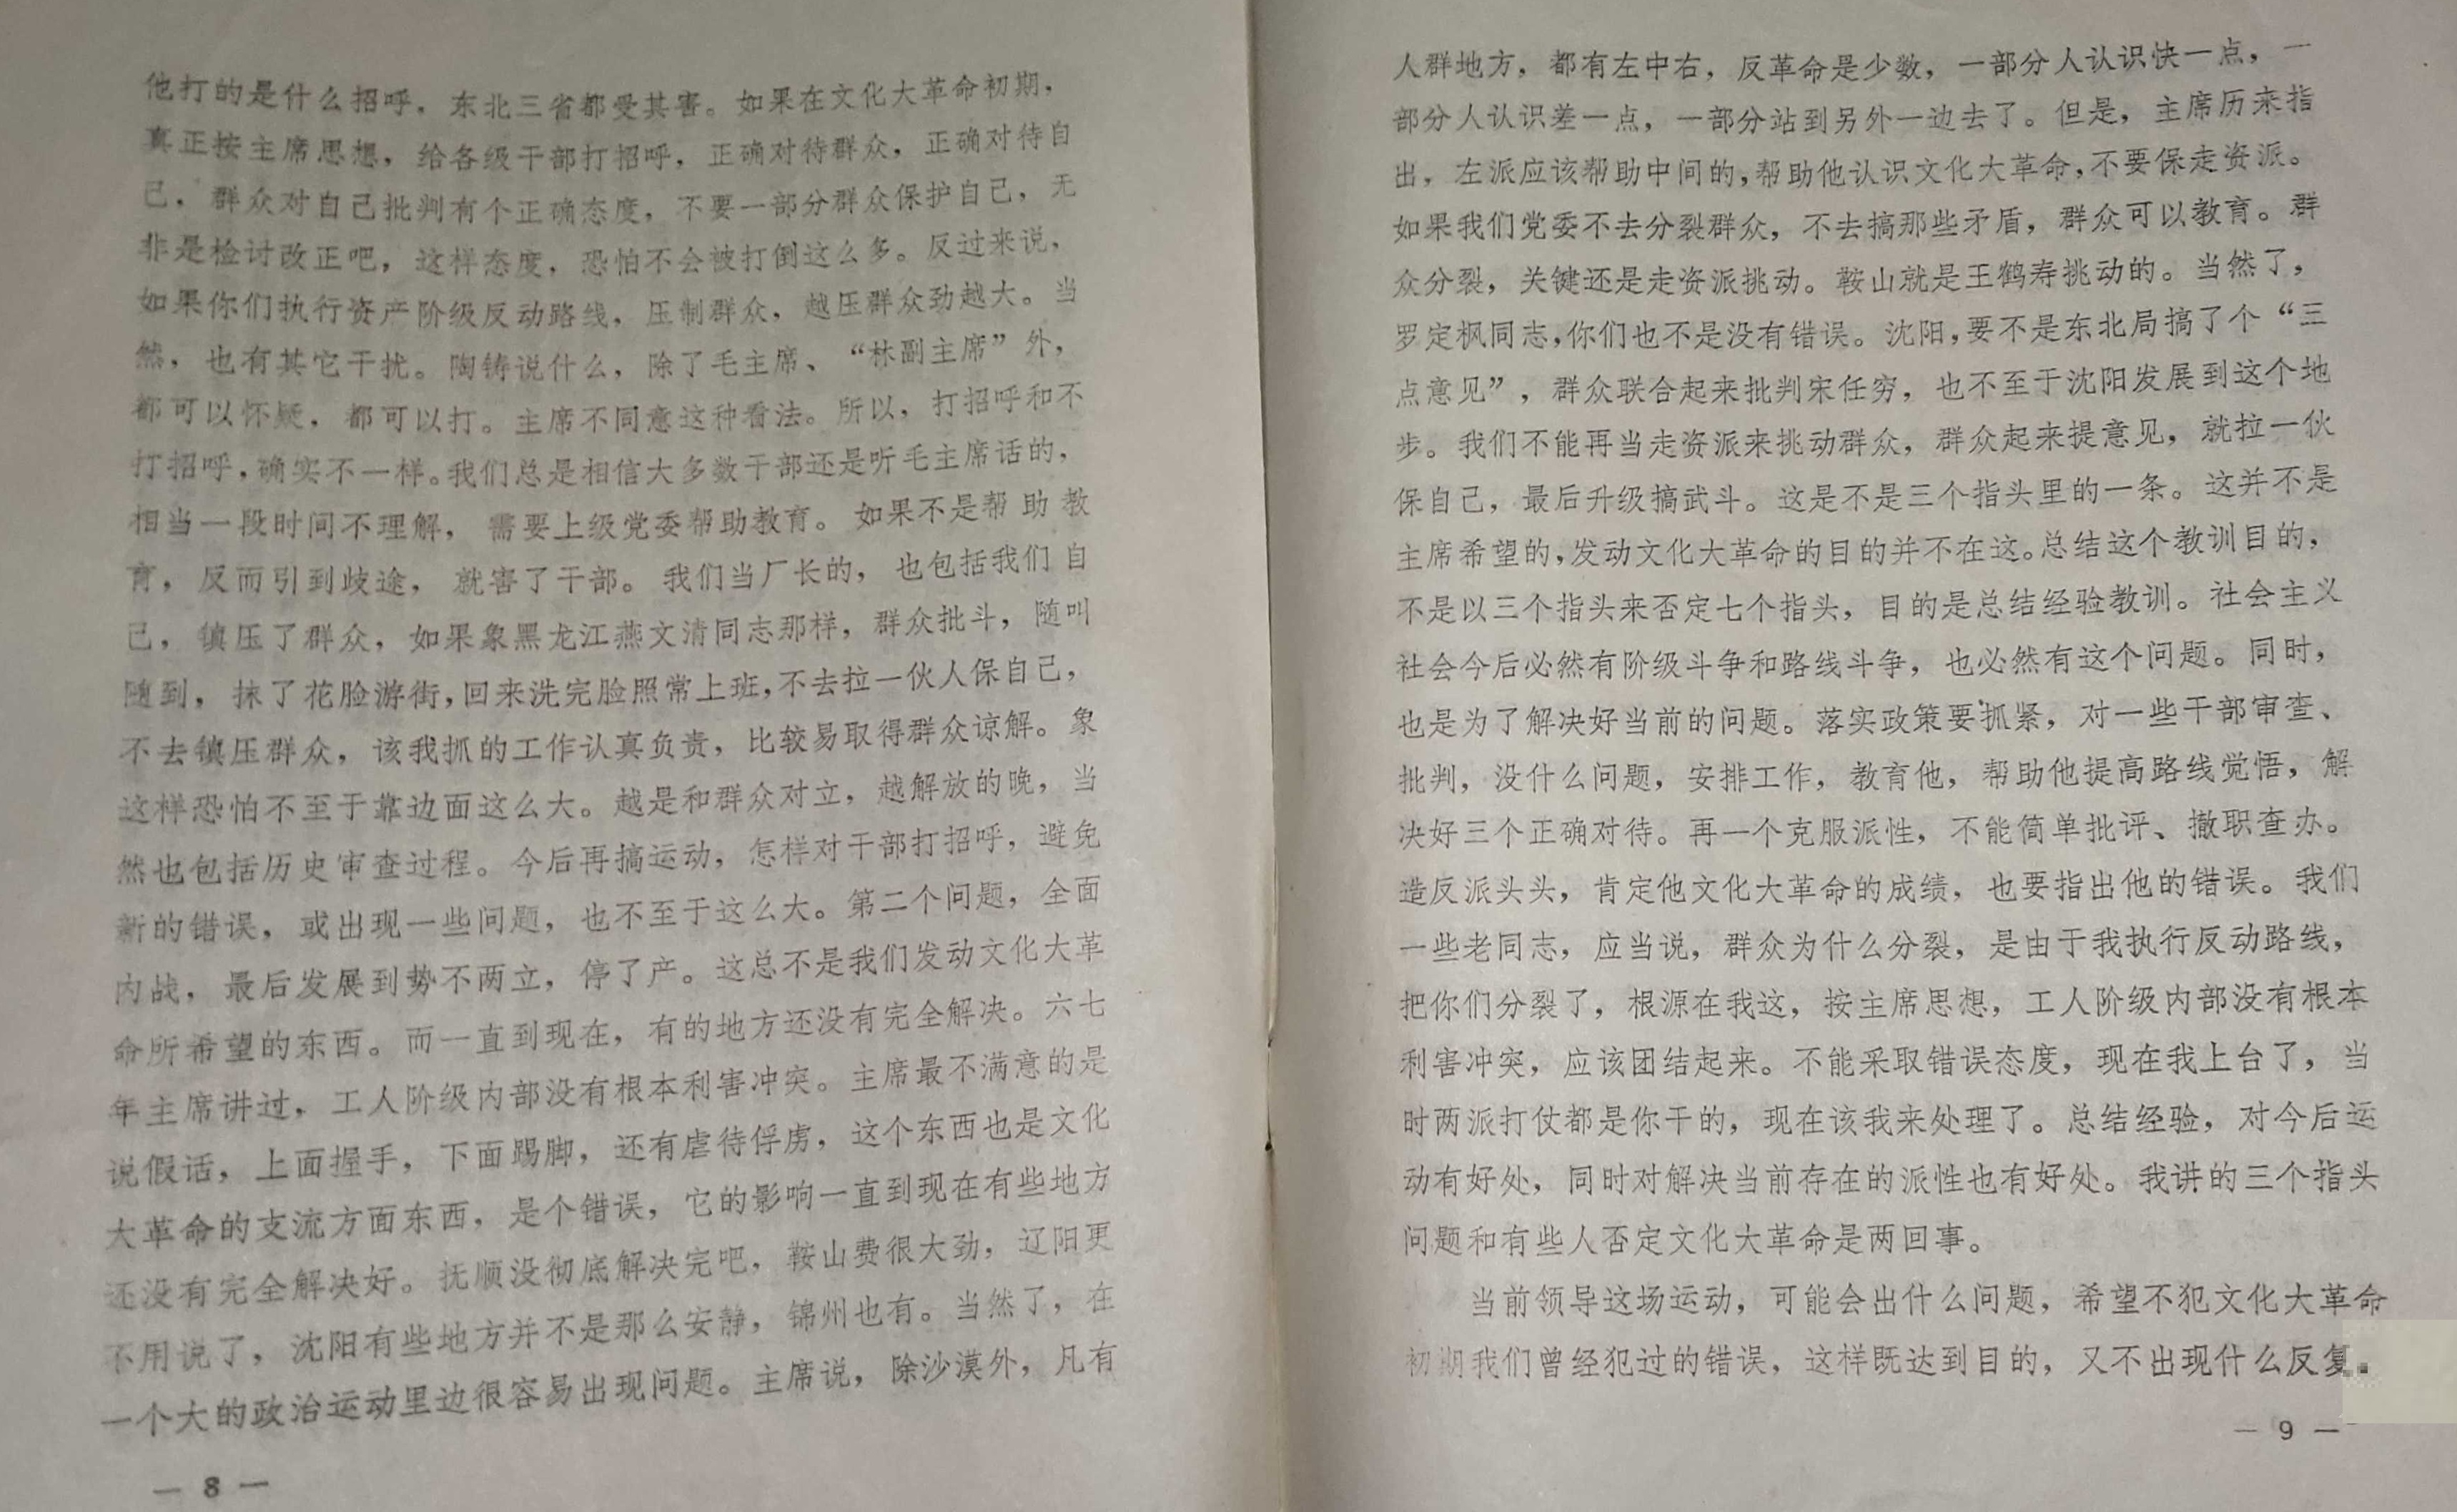 他打的是什么招呼，东北三省都受其害。如果在文化大革命初期，
真正按主席思想，给各级干部打招呼，正确对待群众，正确对待自
己，群众对自己批判有个正确态度，不要一部分群众保护自己，无
非是检讨改正吧，这样态度，恐怕不会被打倒这么多。反过来说，
如果你们执行资产阶级反动路线，压制群众，越压群众劲越大。当
然，也有其它干扰。陶铸说什么，除了毛主席、“林副主席”外，
都可以怀疑，都可以打。主席不同意这种看法。所以，打招呼和不
打招呼，确实不一样。我们总是相信大多数干部还是听毛主席话的，
相当一段时间不理解，需要上级党委帮助教育。如果不是帮助教
育，反而引到歧途，就害了干部。我们当厂长的，也包括我们自
己，镇压了群众，如果象黑龙江燕文清同志那样，群众批斗，随叫
随到，抹了花脸游街，回来洗完脸照常上班，不去拉一伙人保自己，
不去镇压群众，该我抓的工作认真负责，比较易取得群众谅解。象
这样恐怕不至于靠边面这么大。越是和群众对立，越解放的晚，当
然也包括历史审查过程。今后再搞运动，怎样对干部打招呼，避免
新的错误，或出现一些问题，也不至于这么大。第二个问题，全面
内战，最后发展到势不两立，停了产。这总不是我们发动文化大革
命所希望的东西。而一直到现在，有的地方还没有完全解决。六七
年主席讲过，工人阶级内部没有根本利害冲突。主席最不满意的是
说假话，上面握手，下面踢脚，还有虐待俘虏，这个东西也是文化
大革命的支流方面东西，是个错误，它的影响一直到现在有些地方
还没有完全解决好。抚顺没彻底解决完吧，鞍山费很大劲，辽阳更
不用说了，沈阳有些地方并不是那么安静，锦州也有。当然了，在
一个大的政治运动里边很容易出现问题。主席说，除沙漠外，凡有
— 8 —
人群地方，都有左中右，反革命是少数，一部分人认识快一点，一
部分人认识差一点，一部分站到另外一边去了。但是，主席历来指
出，左派应该帮助中间的，帮助他认识文化大革命，不要保走资派。
如果我们党委不去分裂群众，不去搞那些矛盾，群众可以教育。群
众分裂，关键还是走资派挑动。鞍山就是王鹤寿挑动的。当然了，
罗定枫同志，你们也不是没有错误。沈阳，要不是东北局搞了个“三
点意见”，群众联合起来批判宋任穷，也不至于沈阳发展到这个地
步。我们不能再当走资派来挑动群众，群众起来提意见，就拉一伙
保自己，最后升级搞武斗。这是不是三个指头里的一条。这并不是
主席希望的，发动文化大革命的目的并不在这。总结这个教训目的，
不是以三个指头来否定七个指头，目的是总结经验教训。社会主义
社会今后必然有阶级斗争和路线斗争，也必然有这个问题。同时，
也是为了解决好当前的问题。落实政策要抓紧，对一些干部审查、
批判，没什么问题，安排工作，教育他，帮助他提高路线觉悟，解
决好三个正确对待。再一个克服派性，不能简单批评、撤职查办。
造反派头头，肯定他文化大革命的成绩，也要指出他的错误。我们
一些老同志，应当说，群众为什么分裂，是由于我执行反动路线，
把你们分裂了，根源在我这，按主席思想，工人阶级内部没有根本
利害冲突，应该团结起来。不能采取错误态度，现在我上台了，当
时两派打仗都是你干的，现在该我来处理了。总结经验，对今后运
动有好处，同时对解决当前存在的派性也有好处。我讲的三个指头
问题和有些人否定文化大革命是两回事。
当前领导这场运动，可能会出什么问题，希望不犯文化大革命
初期我们曾经犯过的错误，这样既达到目的，又不出现什么反复。
— 9 —